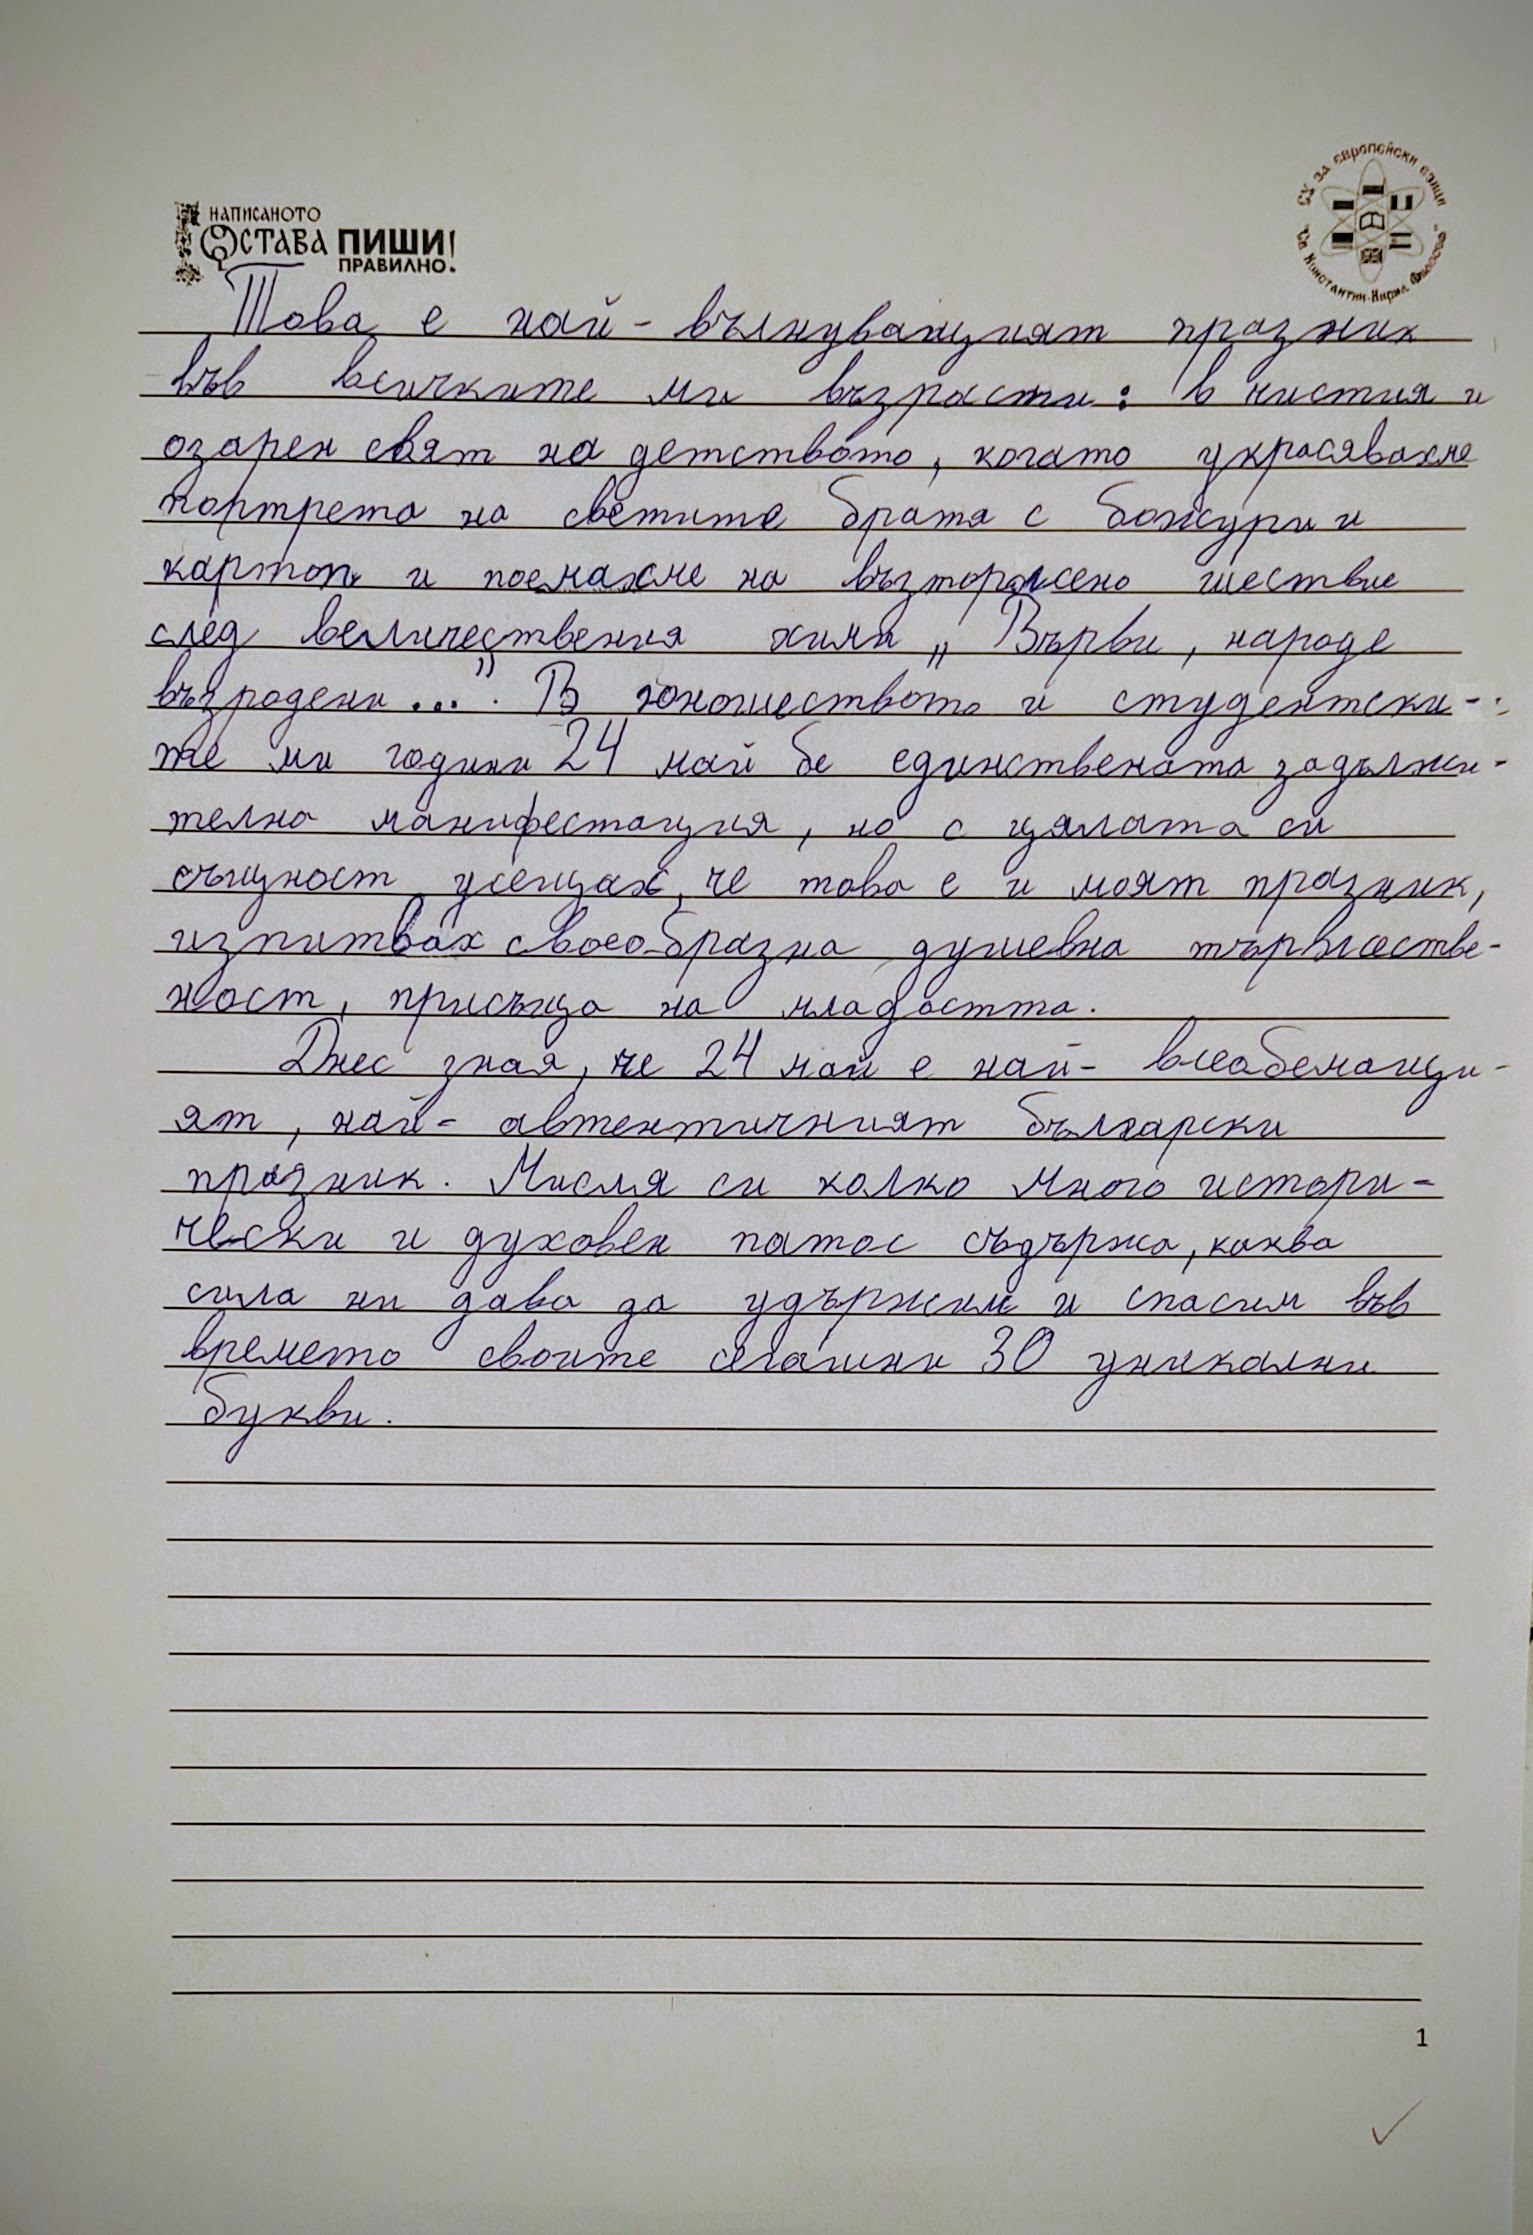 НАПИСАНОТО
ОСТАВА ПИШИ!
ПРАВИЛНО.
СУ ЗА ЕВРОПЕЙСКИ ЕЗИЦИ
"Св. Константин-Кирил Философ"
Това е най-вълнуващият празник
във всичките ми възрасти: в чистия и
озарен свят на детството, когато украсявахме
портрета на светите братя с божури и
картоп и поемахме на възторжено шествие
след величествения химн „Върви, народе
възродени...". В юношеството и студентски-
те ми години 24 май бе единствената задължи-
телна манифестация, но с цялата си
същност усещах, че това е и моят празник,
изпитвах своеобразна душевна тържестве-
ност, присъща на младостта.
Днес зная, че 24 май е най-всеобемащи-
ят, най-автентичният български
празник. Мисля си колко много истори-
чески и духовен патос съдържа, каква
сила ни дава да удържим и спасим във
времето своите сегашни 30 уникални
букви.
1